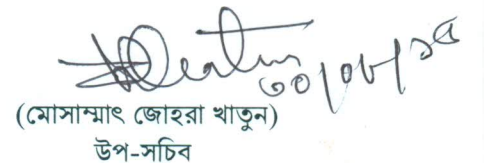 ৩০/০৮/১৫
(মোসাম্মাৎ জোহরা খাতুন)
উপ-সচিব